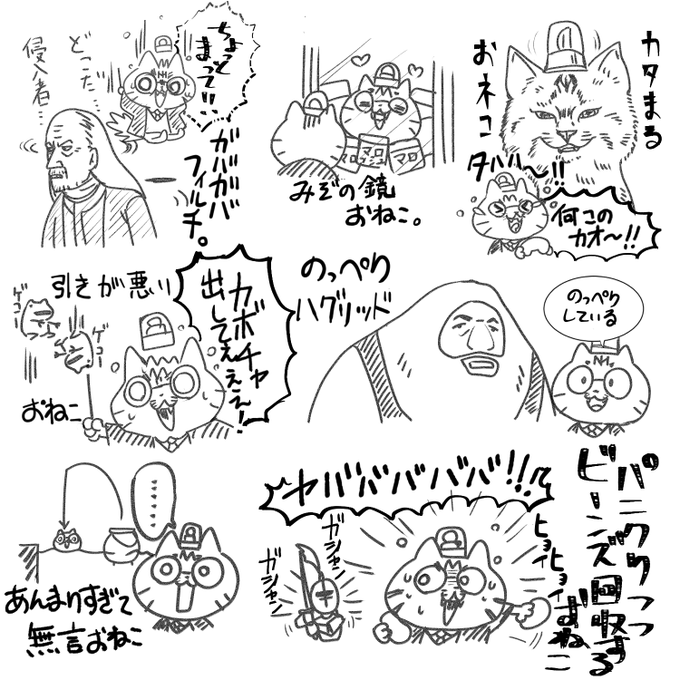 どこだ…
侵入者…
ちょっと
まって!!!
ガバガバ
フィルチ。
マロ
マロ
みぞの鏡
おねこ。
カタまる
おネコ
タハハ〜!!
何この
カオ〜!!
引きが悪い
おねこ
ゲコー
ゲコー
カボチャ
出してぇぇぇ!
のっぺり
ハグリッド
のっぺり
している
あんまりすぎて
無言おねこ
ヤババババババ!!!
ガシャン
ガシャン
ヒョイ
ヒョイ
パニクりつつ
ビーンズ回収する
おねこ